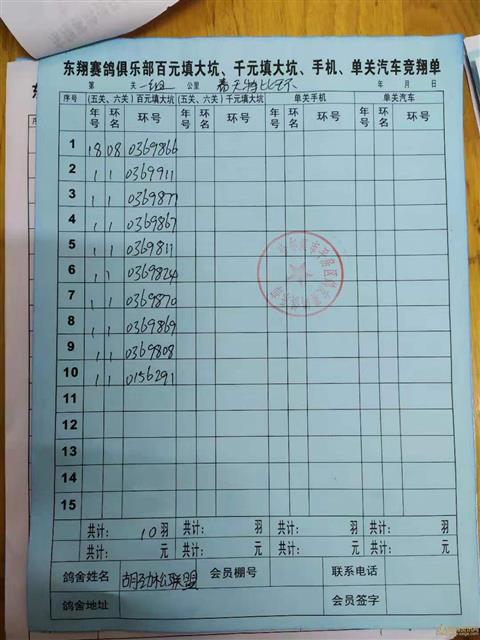 东翔赛鸽俱乐部百元填大坑、千元填大坑、手机、单关汽车竞翔单
第 关 一组 公里 春天特比环 年 月 日
序号 (五关、六关)百元填大坑 (五关、六关)千元填大坑 单关手机 单关汽车
年号 环名 环号 年号 环名 环号 年号 环名 环号 年号 环名 环号
1 18 08 0369866
2 1 1 0369911
3 1 1 0369877
4 1 1 0369867
5 1 1 0369811
6 1 1 0369824
7 1 1 0369870
8 1 1 0369869
9 1 1 0369808
10 1 1 0156291
11
12
13
14
15
共计: 10羽 共计: 羽 共计: 羽 共计: 羽
共计: 元 共计: 元 共计: 元 共计: 元
鸽舍姓名 胡劲松联盟 会员棚号 联系电话
鸽舍地址 会员签字